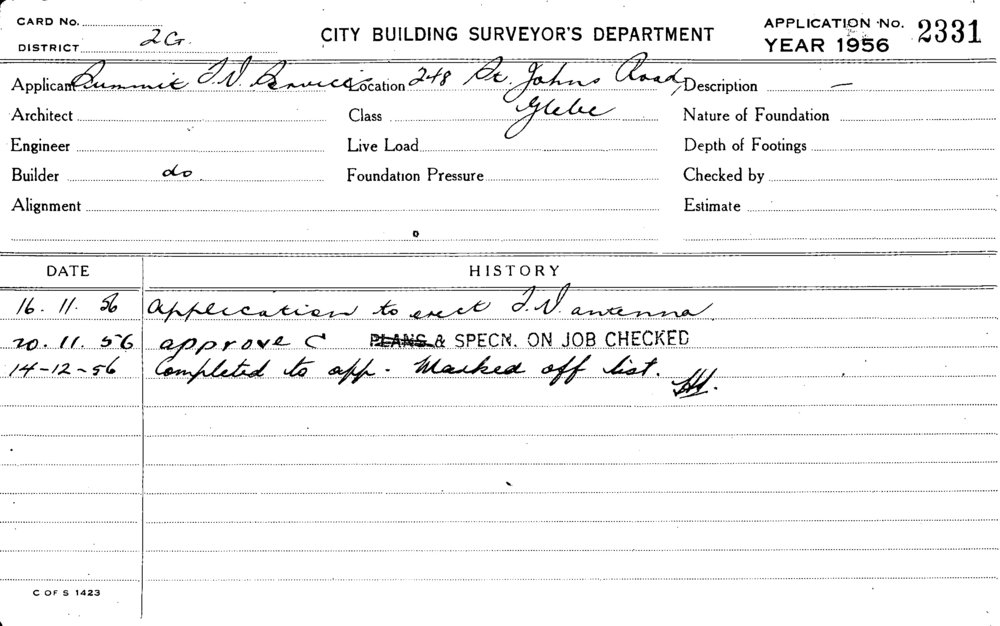 CARD No.
DISTRICT 2G.
CITY BUILDING SURVEYOR'S DEPARTMENT
APPLICATION No. 2331
YEAR 1956
Applicant Summit T.V. Service Location 248 St. Johns Road, Description —
Architect Class Glebe Nature of Foundation
Engineer Live Load Depth of Footings
Builder do Foundation Pressure Checked by
Alignment Estimate
DATE HISTORY
16. 11. 56 Application to erect T.V. antenna
20. 11. 56 approve C PLANS & SPECN. ON JOB CHECKED
14-12-56 Completed to app. Marked off list.
C OF S 1423